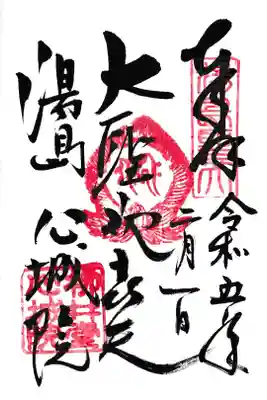 奉拝
令和五年
二月一日
大聖歓喜天
湯島
心城院